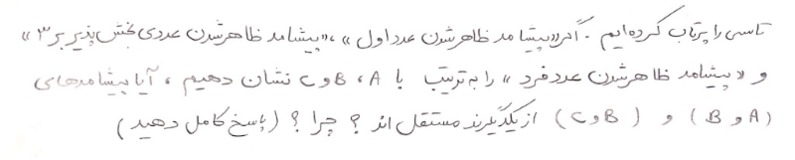 تاسی را پرتاب کرده‌ایم. اگر «پیشامد ظاهر شدن عدد اول»، «پیشامد ظاهر شدن عددی بخش پذیر بر ۳»
و «پیشامد ظاهر شدن عدد فرد» را به ترتیب با A، B و C نشان دهیم، آیا پیشامدهای
(A و B) و (B و C) از یکدیگرند مستقل اند؟ چرا؟ (پاسخ کامل دهید)